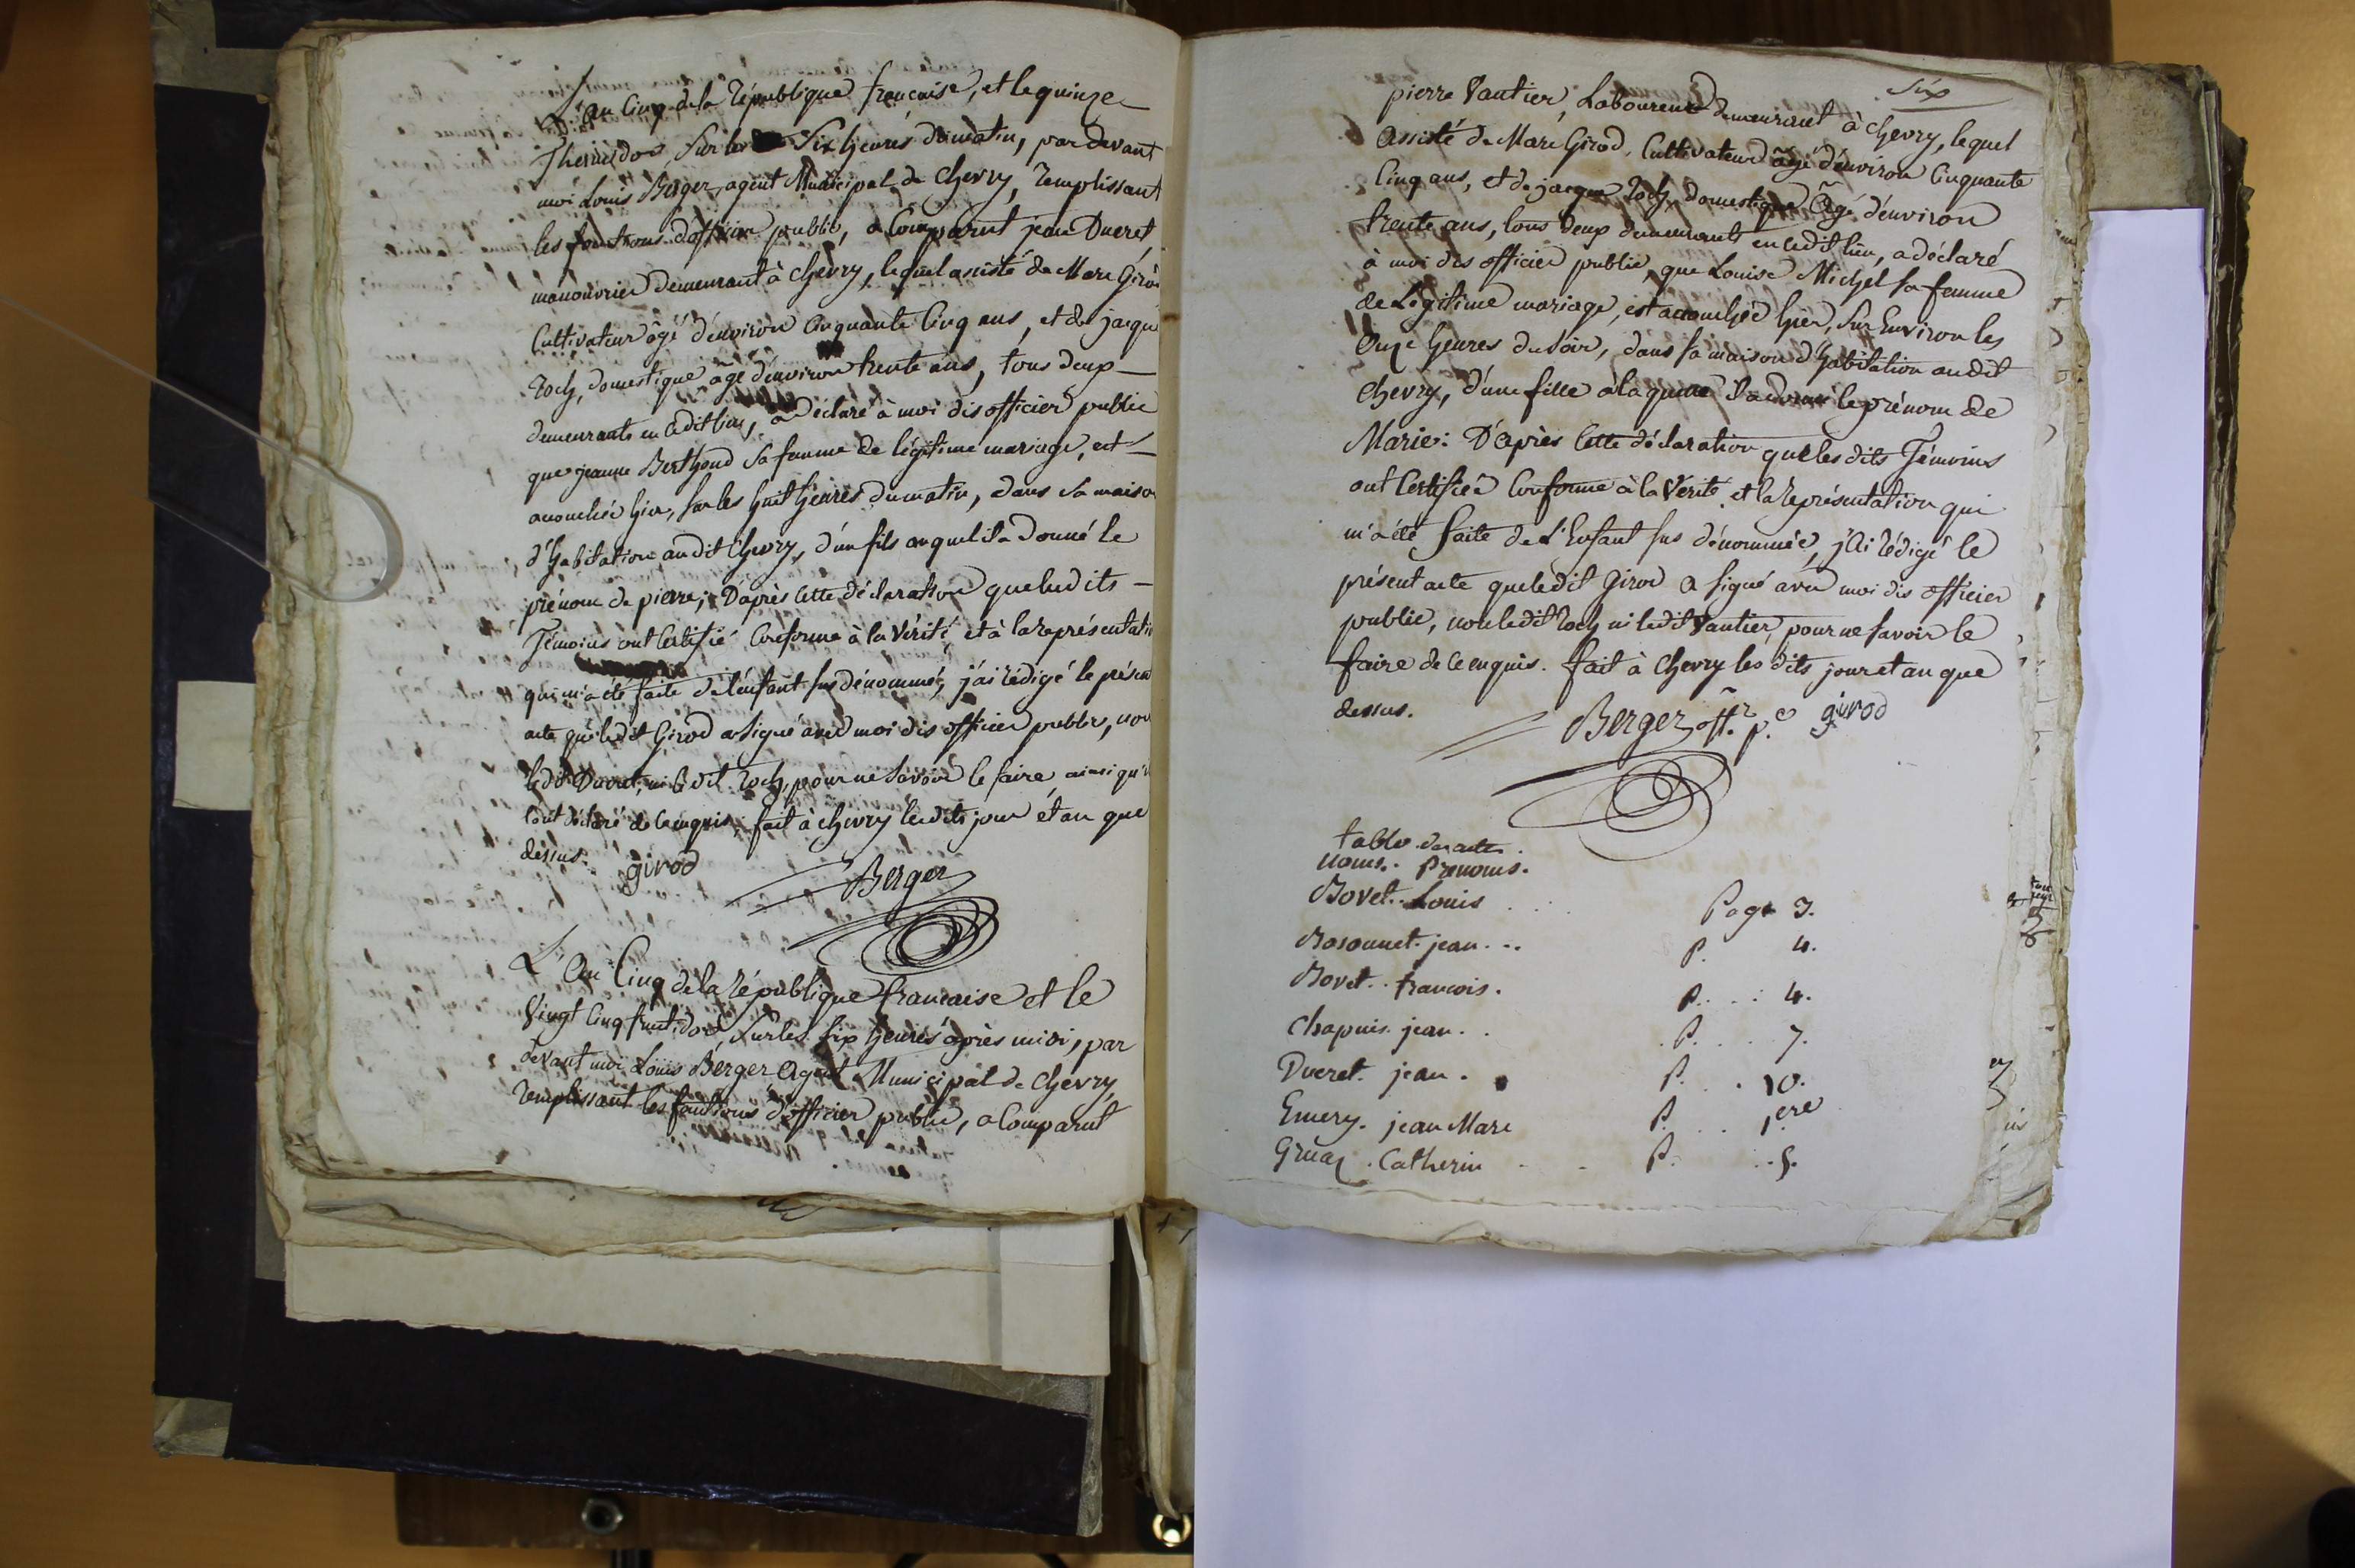 L'an Cinq de la République française, et le quinze
Thermidor, sur les Six heures du matin, par devant
moi Louis Berger, agent Municipal de Chevry, remplissant
les fonctions d'officier public, a Comparut jean Ducret,
manouvrier demeurant à Chevry, lequel assisté de Marc Giro
Cultivateur âgé d'environ Cinquante Cinq ans, et de jacque
Roch, domestique âgé d'environ trente ans, tous deux
demeurants en ledit lieu, a déclaré à moi dis officier public
que jeanne Berthoud sa femme de légitime mariage, est
accouchée hier, sur les huit heures du matin, dans sa maison
d'habitation audit Chevry, d'un fils auquel il a donné le
prénom de pierre; D'après Cette déclaration que lesdits
Témoins ont Certifié Conforme à la Vérité, et à la représentati
qui m'a été faite de l'enfant sus dénommé, j'ai rédigé le présen
acte que ledit Girod a signé avec moi dis officier public, non
ledit Ducret, ni ledit Roch, pour ne savoir le faire, ainsi qu'il
l'ont déclaré de ce enquis, fait à Chevry lesdits jour et an que
dessus. girod Berger
L'An Cinq de la république française et le
Vingt Cinq fructidor, Sur les six heures après midi, par
devant moi Louis Berger Agent Municipal de Chevry,
remplissant les fonctions d'officier public, a Comparut
Six
pierre Vautier, Laboureur demeurant à Chevry, lequel
Assisté de Marc Girod, Cultivateur âgé d'environ Cinquante
Cinq ans, et de jacque Roch, domestique Âgé d'environ
trente ans, tous deux demeurant en ledit lieu, a déclaré
à moi dis officier public, que Louise Michel sa femme
de Légitime mariage, est accouchée hier, Sur Environ les
Onze heures du soir, dans sa maison d'habitation audit
Chevry, d'une fille à laquelle il a donné le prénom de
Marie: D'après Cette déclaration que lesdits Témoins
ont Certifiée Conforme à la Vérité, et la représentation qui
m'a été faite de L'Enfant sus dénommée, j'Ai rédigé le
présent acte que ledit Girod a signé avec moi dis officier
public, non ledit Roch ni ledit Vautier, pour ne savoir le
faire de ce enquis. fait à Chevry les dits jour et an que
dessus. Berger off.r p.c girod
table des actes.
noms. Prenoms.
Bovet. Louis Page 3.
Rosonnet. jean... P. 4.
Bovet. francois. P. 4.
Chapuis. jean.. P. 7.
Ducret. jean. P. 10.
Emery. jean Marc P. 1.ere
Gruaz. Catherin P. 5.